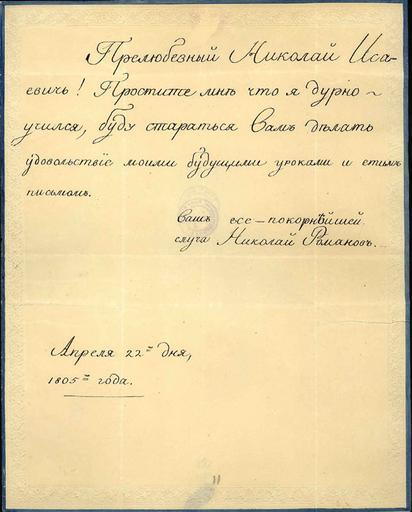 Прелюбезный Николай Иса-
евичь! Простите мнѣ что я дурно ~
учился, буду стараться Вамъ дѣлать
удовольствiе моими будущими уроками и етимъ
письмомъ.
Вашъ все-покорнѣйшей
слуга Николай Романовъ.
Апреля 22-го дня,
1805-го года.
11